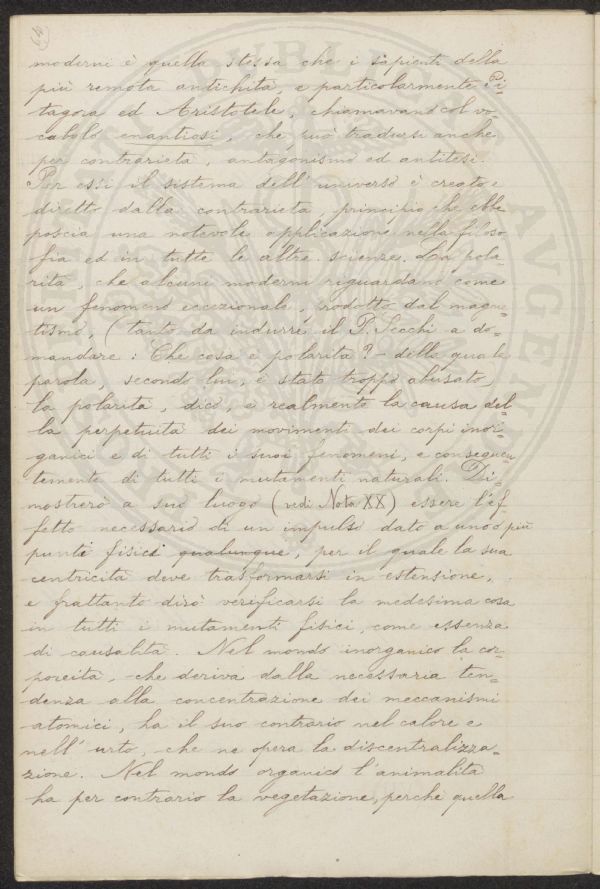 64
moderni è quella stessa che i sapienti della
più remota antichità, e particolarmente Pi=
tagora ed Aristotele, chiamavano col vo=
cabolo enantiosi, che può tradursi anche
per contrarietà, antagonismo ed antitesi.
Per essi il sistema dell'universo è creato e
diretto dalla contrarietà, principio che ebbe
poscia una notevole applicazione nella filoso
fia ed in tutte le altre scienze. La pola=
rità, che alcuni moderni riguardano come
un fenomeno eccezionale, prodotto dal magne=
tismo, (tanto da indurre il P. Secchi a do=
mandare: Che cosa è polarità? - della quale
parola, secondo lui, è stato troppo abusato)
la polarità, dico, è realmente la causa del=
la perpetuità dei movimenti dei corpi inor=
ganici e di tutti i suoi fenomeni, e conseguen
temente di tutti i mutamenti naturali. Di=
mostrerò a suo luogo (vedi Nota XX) essere l'ef=
fetto necessario di un impulso dato a uno o più
punti fisici qualunque, per il quale la sua
centricità deve trasformarsi in estensione,
e frattanto dirò verificarsi la medesima cosa
in tutti i mutamenti fisici, come essenza
di causalità. Nel mondo inorganico la cor=
poreità, che deriva dalla necessaria ten=
denza alla concentrazione dei meccanismi
atomici, ha il suo contrario nel calore e
nell'urto, che ne opera la discentralizza=
zione. Nel mondo organico l'animalità
ha per contrario la vegetazione, perchè quella